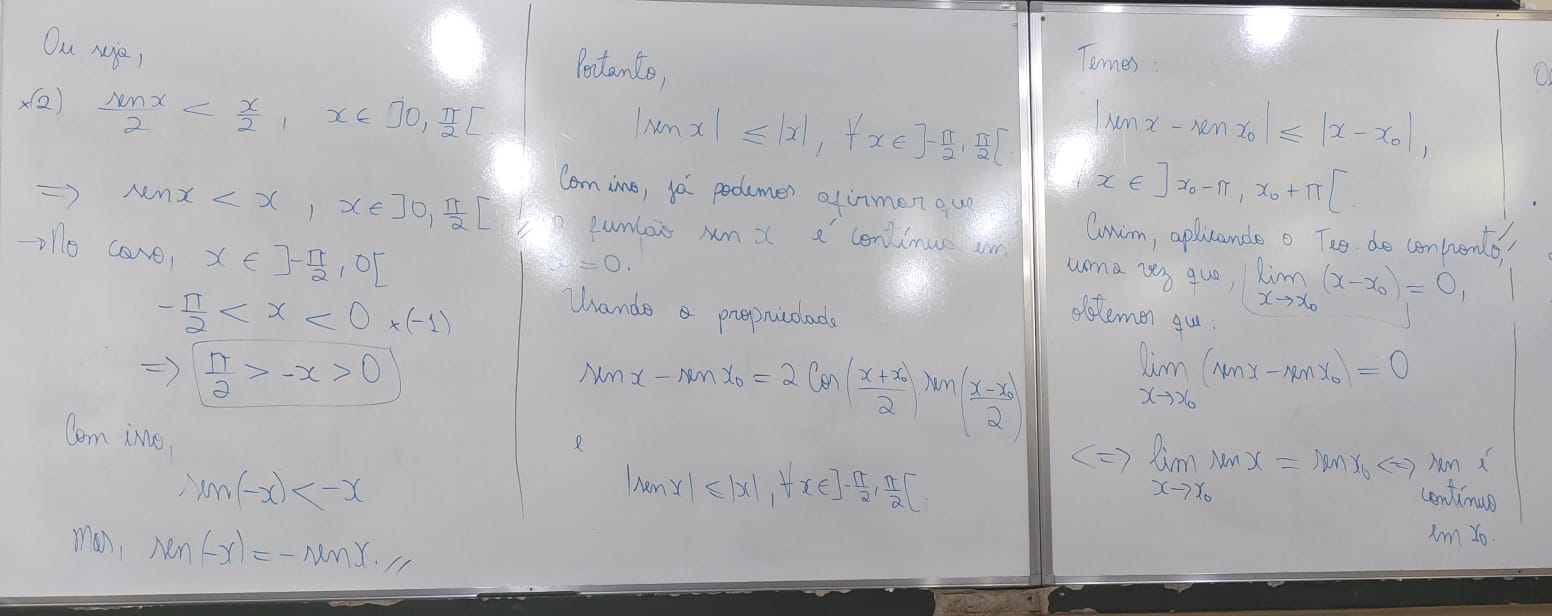 Ou seja,
×(2) senx/2 < x/2 , x ∈ ]0, π/2[.
⇒ senx < x , x ∈ ]0, π/2[ //
→ No caso, x ∈ ]-π/2, 0[
-π/2 < x < 0 ×(-1)
⇒ π/2 > -x > 0
Com isso,
sen(-x) < -x
Mas, sen(-x) = -senx. //
Portanto,
|senx| ≤ |x|, ∀ x ∈ ]-π/2, π/2[.
Com isso, já podemos afirmar que
função sen x é contínua em
x = 0.
Usando a propriedade
senx - senx₀ = 2 Cos((x+x₀)/2).sen((x-x₀)/2)
e
|senx| ≤ |x|, ∀ x ∈ ]-π/2, π/2[.
Temos:
|senx - senx₀| ≤ |x - x₀|,
x ∈ ]x₀-π, x₀+π[.
Assim, aplicando o Teo. do confronto, //
uma vez que, lim x→x₀ (x-x₀) = 0,
obtemos que:
lim x→x₀ (senx - senx₀) = 0
<=> lim x→x₀ senx = senx₀ <=> sen é
contínua
em x₀.